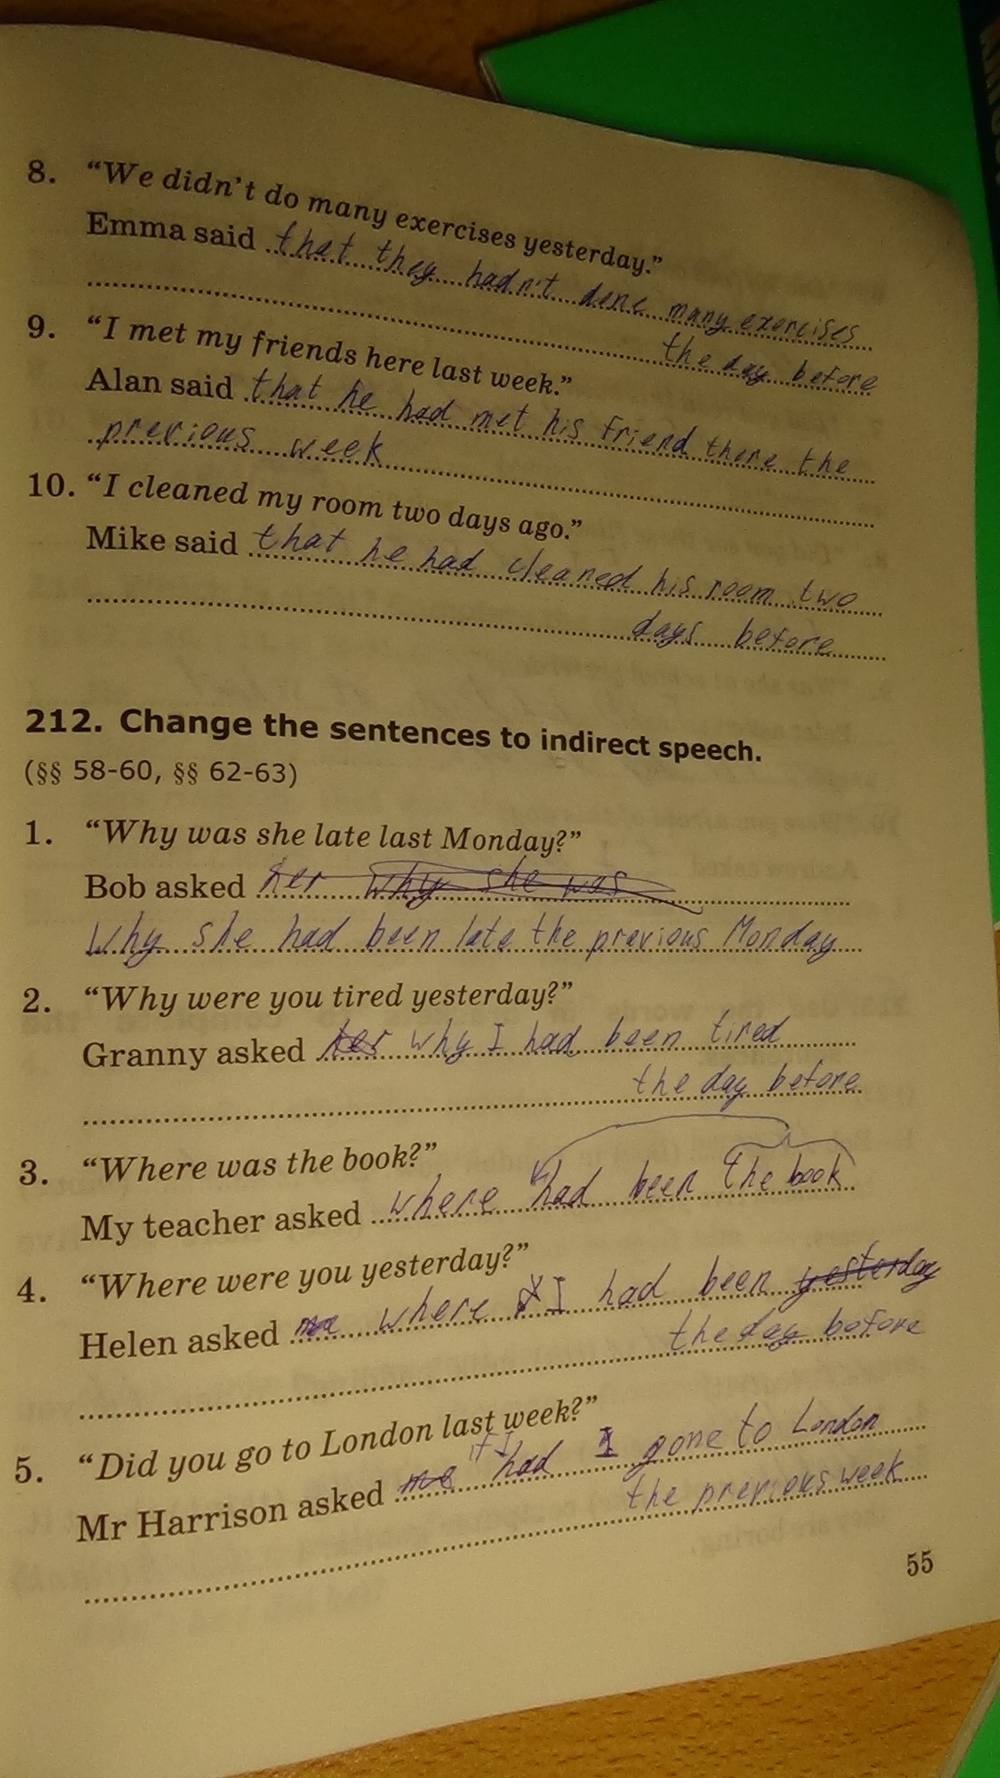 8. “We didn’t do many exercises yesterday.”
Emma said that they hadn't done many exercises
the day before
9. “I met my friends here last week.”
Alan said that he had met his friend there the
previous week
10. “I cleaned my room two days ago.”
Mike said that he had cleaned his room two
days before
212. Change the sentences to indirect speech.
(§§ 58-60, §§ 62-63)
1. “Why was she late last Monday?”
Bob asked her why she was
Why she had been late the previous Monday
2. “Why were you tired yesterday?”
Granny asked her why I had been tired
the day before
3. “Where was the book?”
My teacher asked where had been the book
4. “Where were you yesterday?”
Helen asked me where I had been yesterday
the day before
5. “Did you go to London last week?”
if I
Mr Harrison asked me had I gone to London
the previous week
55